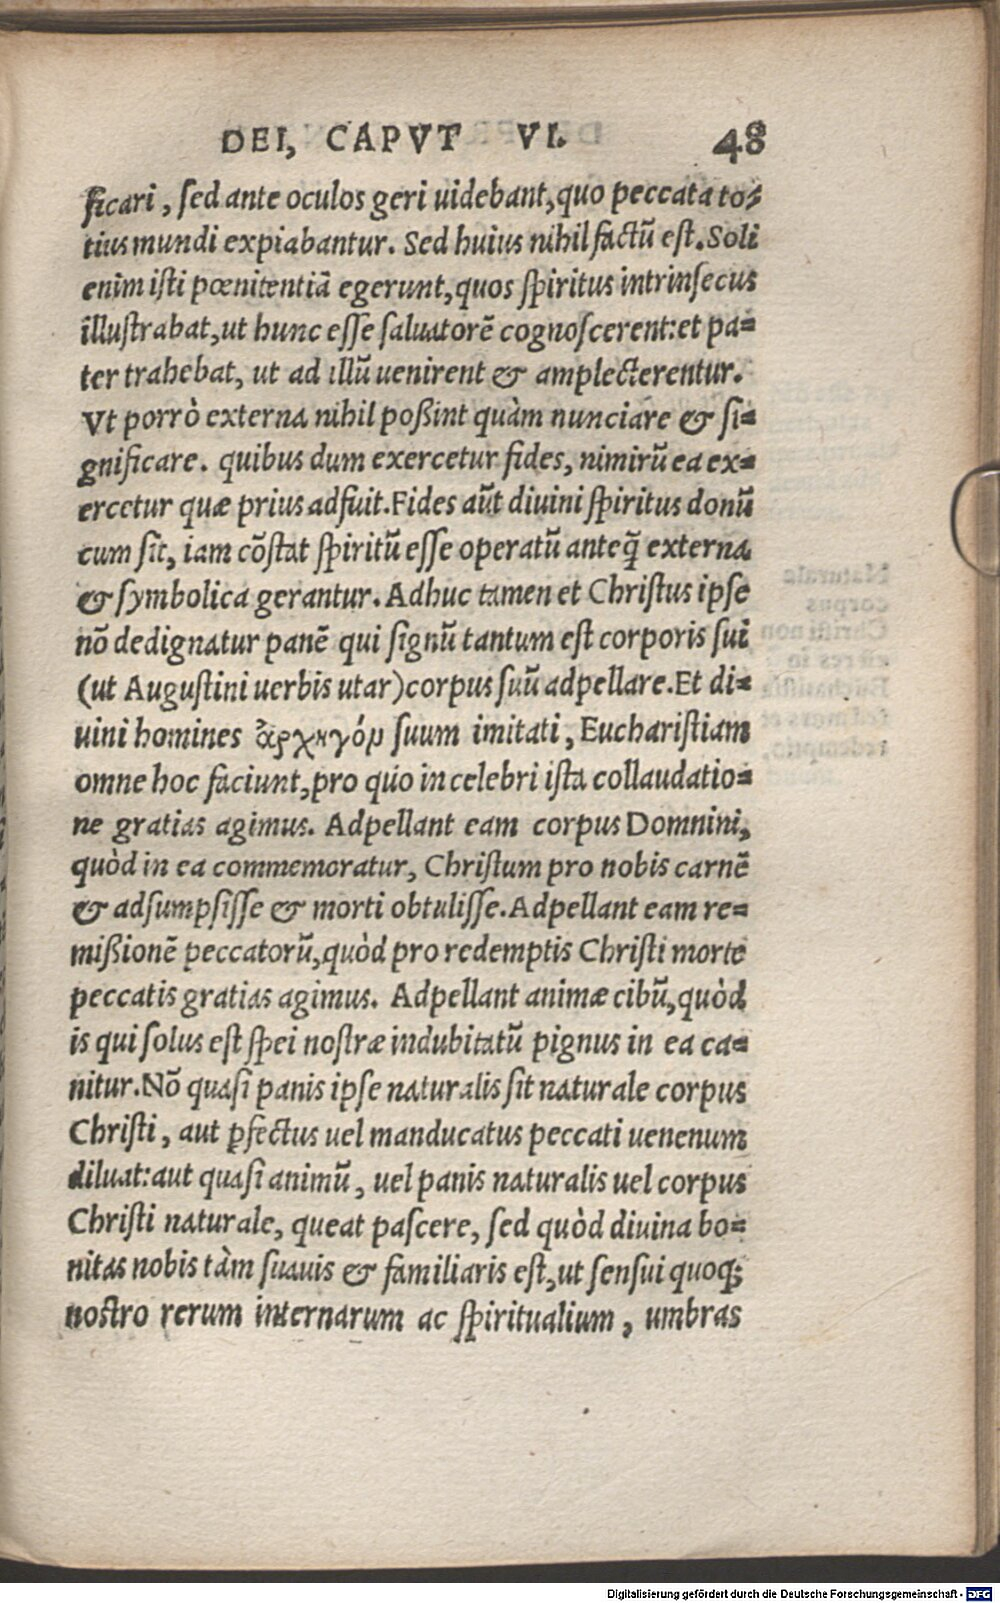 DEI, CAPVT VI. 48
ficari, sed ante oculos geri uidebant, quo peccata to-
tius mundi expiabantur. Sed huius nihil factũ est. Soli
enim isti pœnitentiã egerunt, quos spiritus intrinsecus
illustrabat, ut hunc esse saluatorẽ cognoscerent: et pa-
ter trahebat, ut ad illũ uenirent & amplecterentur.
Vt porrò externa nihil poßint quàm nunciare & si-
gnificare. quibus dum exercetur fides, nimirũ ea ex-
ercetur quæ prius adfuit. Fides aũt diuini spiritus donũ
cum sit, iam cõstat spiritũ esse operatũ anteq̃ externa
& symbolica gerantur. Adhuc tamen et Christus ipse
nõ dedignatur panẽ qui signũ tantum est corporis sui
(ut Augustini uerbis utar) corpus suũ adpellare. Et di-
uini homines ἀρχηγόμ suum imitati, Eucharistiam
omne hoc faciunt, pro quo in celebri ista collaudatio-
ne gratias agimus. Adpellant eam corpus Domnini,
quòd in ea commemoratur, Christum pro nobis carnẽ
& adsumpsisse & morti obtulisse. Adpellant eam re-
mißionẽ peccatorũ, quòd pro redemptis Christi morte
peccatis gratias agimus. Adpellant animæ cibũ, quòd
is qui solus est spei nostræ indubitatũ pignus in ea ca-
nitur. Nõ quasi panis ipse naturalis sit naturale corpus
Christi, aut ꝑfectus uel manducatus peccati uenenum
diluat: aut quasi animũ, uel panis naturalis uel corpus
Christi naturale, queat pascere, sed quòd diuina bo-
nitas nobis tàm suauis & familiaris est, ut sensui quoq;
nostro rerum internarum ac spiritualium, umbras
Digitalisierung gefördert durch die Deutsche Forschungsgemeinschaft - DFG